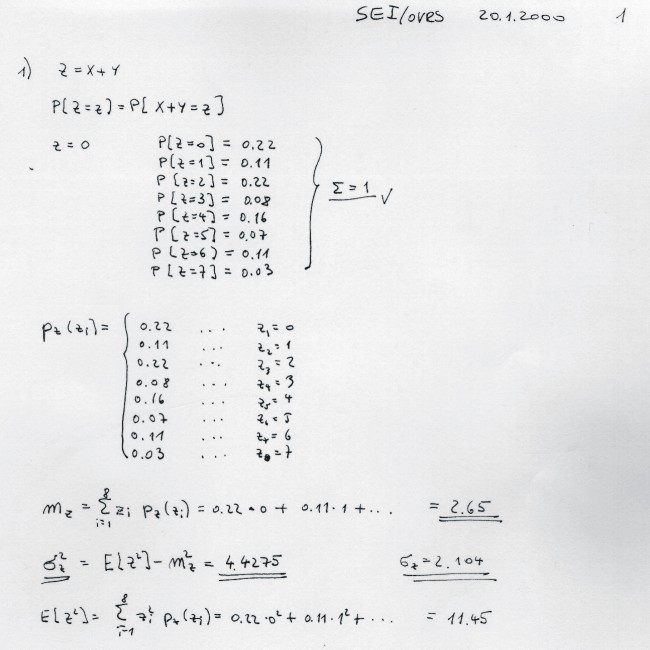 SEI/oves 20.1.2000 1
1) Z = X+Y
P[Z=z] = P[X+Y=z]
z = 0 P[Z=0] = 0.22
P[Z=1] = 0.11
P[Z=2] = 0.22
P[Z=3] = 0.08
P[Z=4] = 0.16
P[Z=5] = 0.07
P[Z=6] = 0.11
P[Z=7] = 0.03
Σ = 1 ✓
p_z(z_i) = { 0.22 ... z₁ = 0
0.11 ... z₂ = 1
0.22 ... z₃ = 2
0.08 ... z₄ = 3
0.16 ... z₅ = 4
0.07 ... z₆ = 5
0.11 ... z₇ = 6
0.03 ... z₈ = 7
m_z = Σ_{i=1}^{8} z_i p_z(z_i) = 0.22·0 + 0.11·1 + ... = 2.65
σ_z² = E[Z²] - m_z² = 4.4275 σ_z = 2.104
E[Z²] = Σ_{i=1}^{8} z_i² p_z(z_i) = 0.22·0² + 0.11·1² + ... = 11.45